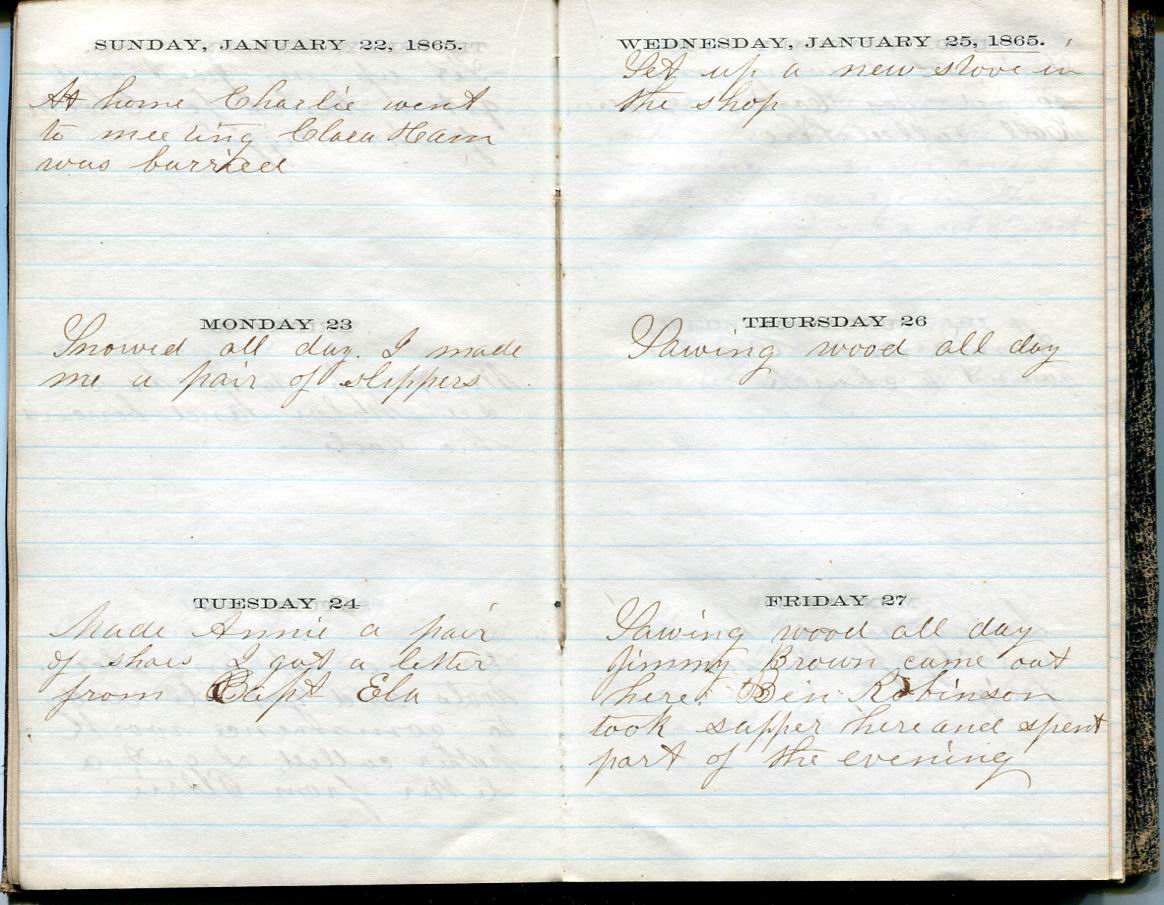 SUNDAY, JANUARY 22, 1865.
At home Charlie went
to meeting Clara Ham
was burried
MONDAY 23
Snowed all day. I made
me a pair of slippers
TUESDAY 24
Made Annie a pair
of shoes I got a letter
from Capt Ela
WEDNESDAY, JANUARY 25, 1865.
Set up a new stove in
the shop
THURSDAY 26
Sawing wood all day
FRIDAY 27
Sawing wood all day
Jimmy Brown came out
here. Ben Robinson
took supper here and spent
part of the evening